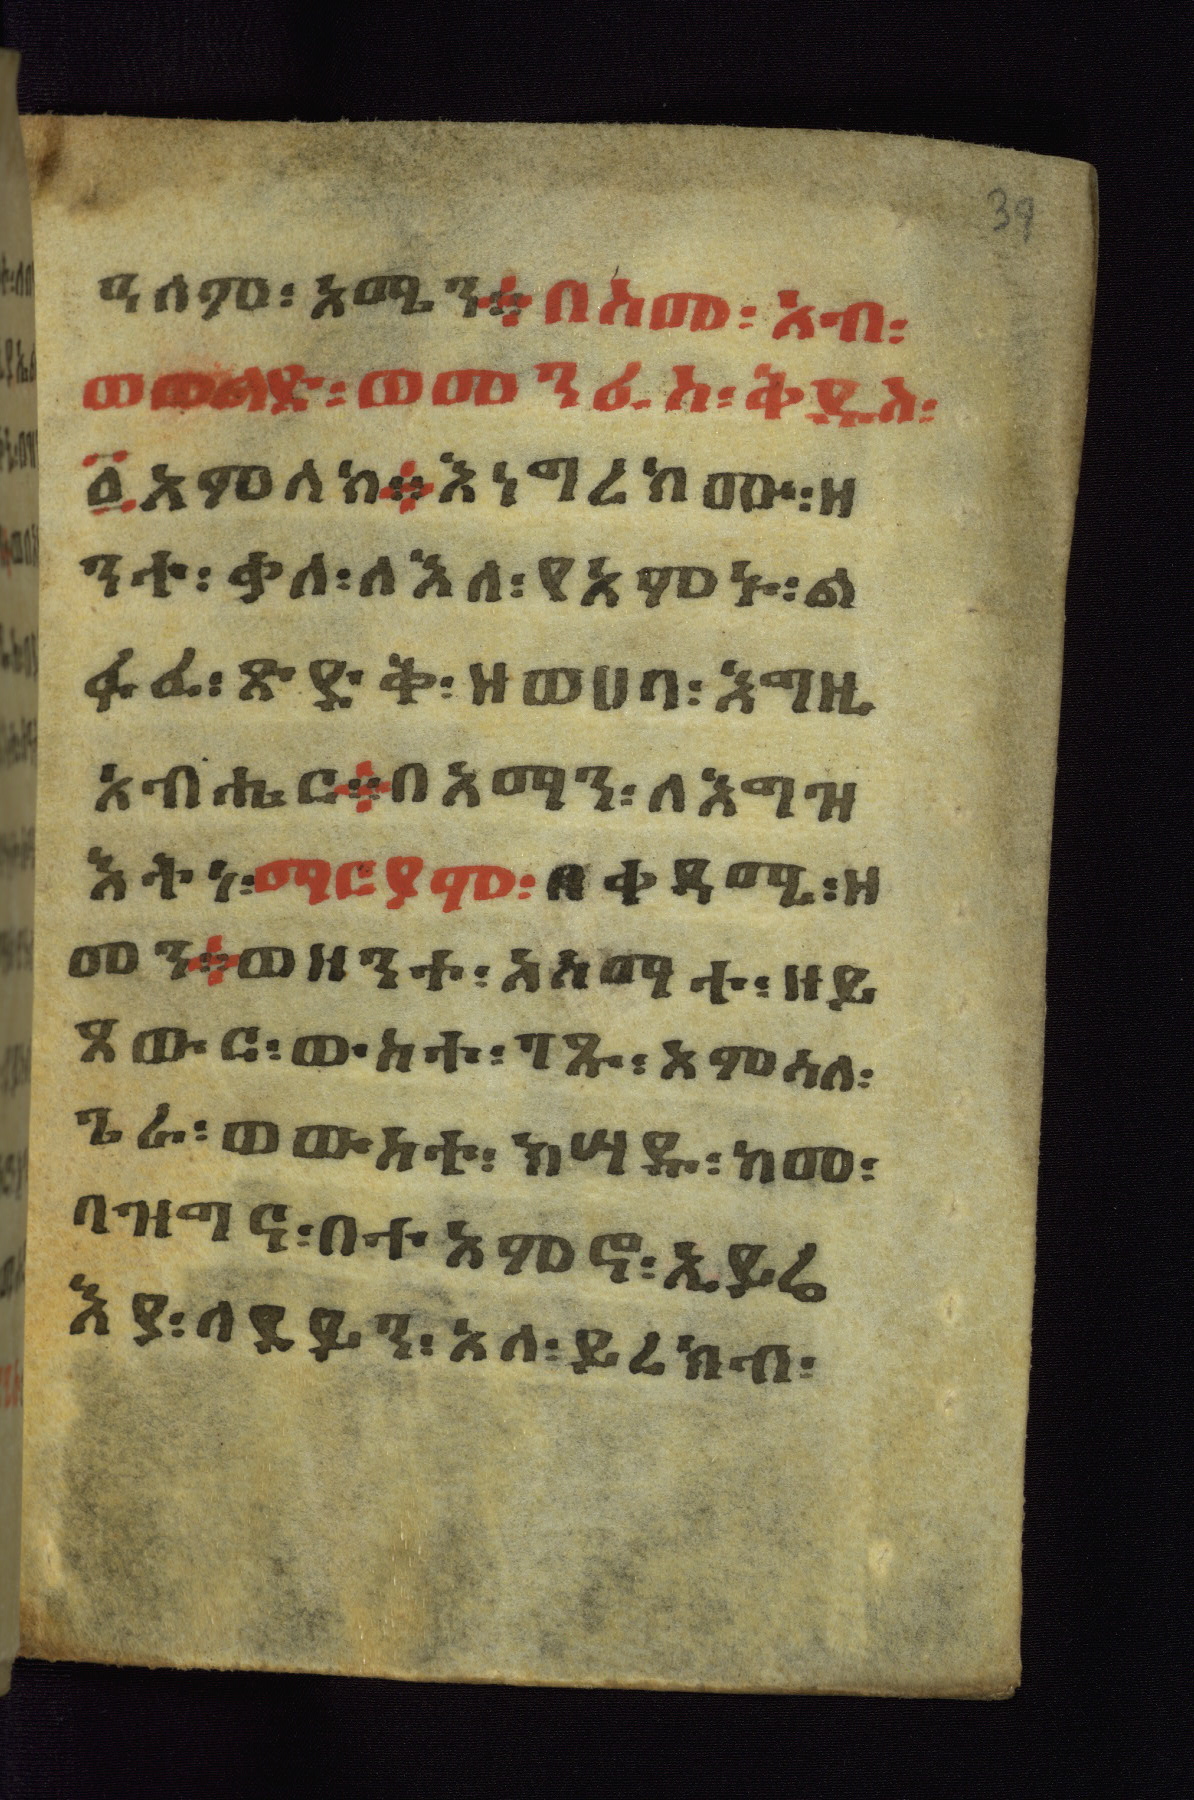 39
ዓለም፡ አሜን። በስመ፡ አብ፡
ወወልድ፡ ወመንፈስ፡ ቅዱስ፡
፩አምላክ። እነግረክሙ፡ ዘ
ንተ፡ ቃለ፡ ለእለ፡ የአምኑ፡ ል
ፋፈ፡ ጽድቅ፡ ዘወሀባ፡ እግዚ
አብሔር። በአማን፡ ለእግዝ
እትነ፡ ማርያም፡ በቀዳሚ፡ ዘ
መን። ወዘንተ፡ አስማተ፡ ዘይ
ጸውር፡ ውስተ፡ ገጹ፡ አምሳለ፡
ጌራ፡ ወውስተ፡ ክሣዱ፡ ከመ፡
ባዝግና፡ በተአምኖ፡ ኢይሬ
እያ፡ ለደይን፡ አላ፡ ይረክብ፡